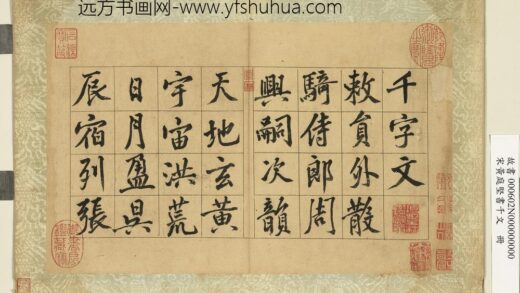 远方书画网-www.yfshuhua.com
千字文
敕員外散
騎侍郎周
興嗣次韻
天地玄黃
宇宙洪荒
日月盈昃
辰宿列張
故書 000602N000000000
宋黃庭堅書千文 冊